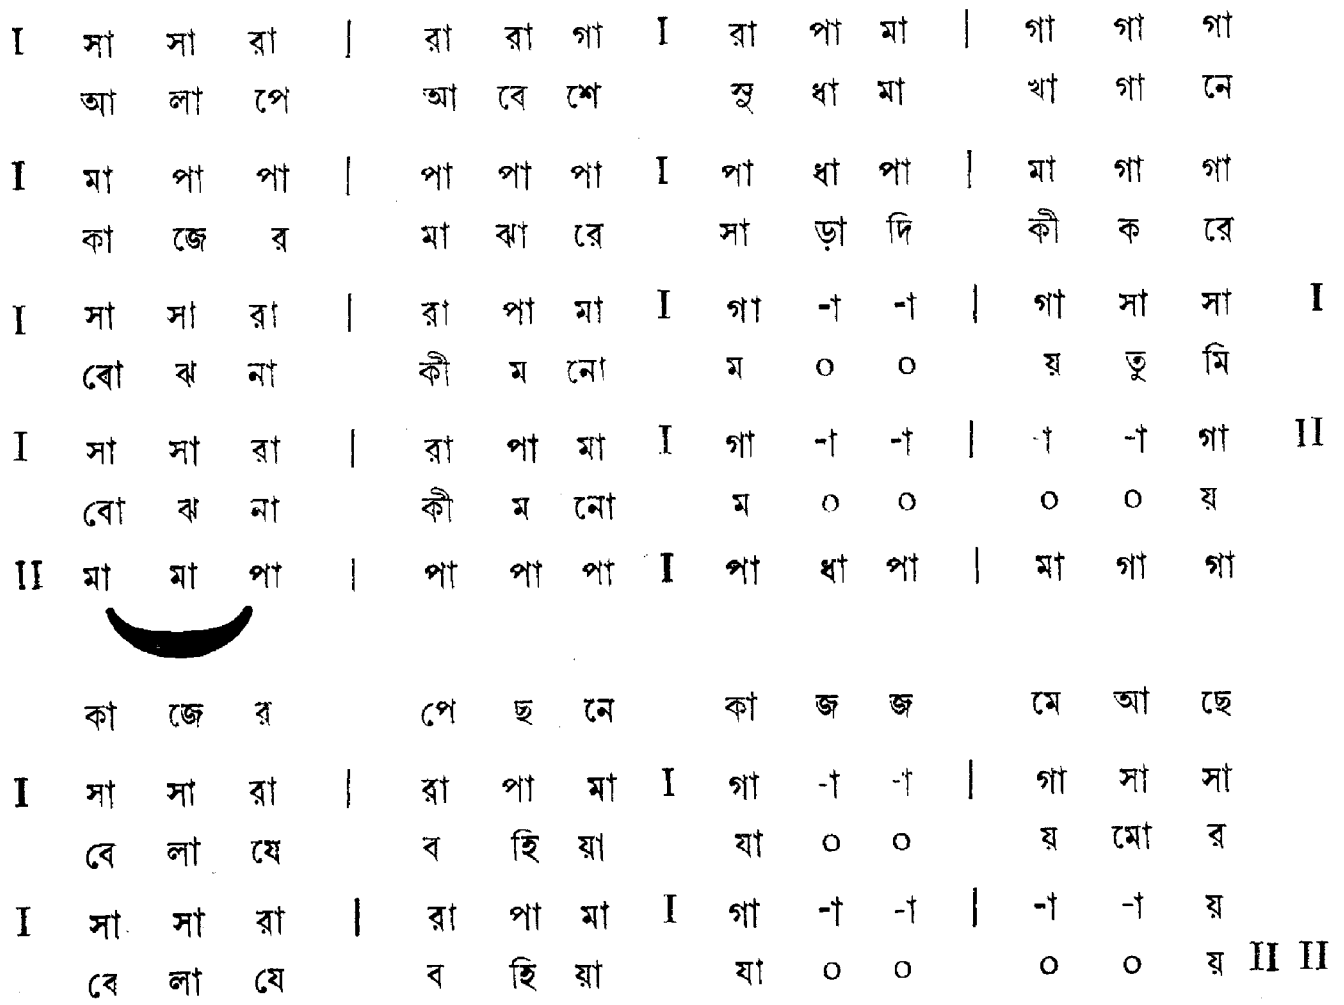 I সা সা রা | রা রা গা I রা পা মা | গা গা গা
আ লা পে আ বে শে সু ধা মা খা গা নে
I মা পা পা | পা পা পা I পা ধা পা | মা গা গা
কা জে র মা ঝা রে সা ড়া দি কী ক রে
I সা সা রা | রা পা মা I গা -া -া | গা সা সা I
বো ঝ না কী ম নো ম ০ ০ য় তু মি
I সা সা রা | রা পা মা I গা -া -া | -া -া গা II
বো ঝ না কী ম নো ম ০ ০ ০ ০ য়
II মা মা পা | পা পা পা I পা ধা পা | মা গা গা
কা জে র পে ছ নে কা জ জ মে আ ছে
I সা সা রা | রা পা মা I গা -া -া | গা সা সা
বে লা যে ব হি য়া যা ০ ০ য় মো র
I সা সা রা | রা পা মা I গা -া -া | -া -া য়
বে লা যে ব হি য়া যা ০ ০ ০ ০ য় II II